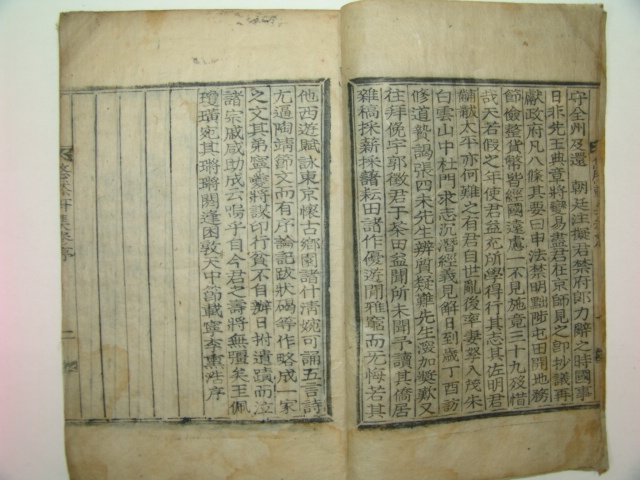 守全州及還　朝廷注擬君禁府郎力辭之時國事
日非先王典章將變易盡君在京師見之卽抄議再
獻政府凡八條其要曰申法禁明黜陟屯田開地務
節儉整貨幣皆經國遠慮一不見施竟三十九歿惜
哉天若假之年使君益充所學得行其志其佐明君
黼黻太平亦何難之有君自世亂後率妻孥入茂朱
白雲山中杜門求志沉潛經義見解日到歲丁酉訪
修道贄謁張四未先生辨質疑難先生深加獎歎又
往拜俛宇郭徵君于茶田益聞所未聞予讀其僑居
雜稿採薪採諸耘田諸作優遊閒雅窮而无悔若其
他西遊賦詠東京懷古鄉園諸什淸婉可誦五言詩
尤逼陶靖節文而有序論記跋狀碣等作略成一家
之文其弟寧燮將謀印行貧不自辦日拊遺蹟而泣
諸宗戚咸助成云嗚乎自今君之壽將無疆矣玉佩
瓊璜宛其瑯瑯閼逢困敦天中節載寧李熏浩序